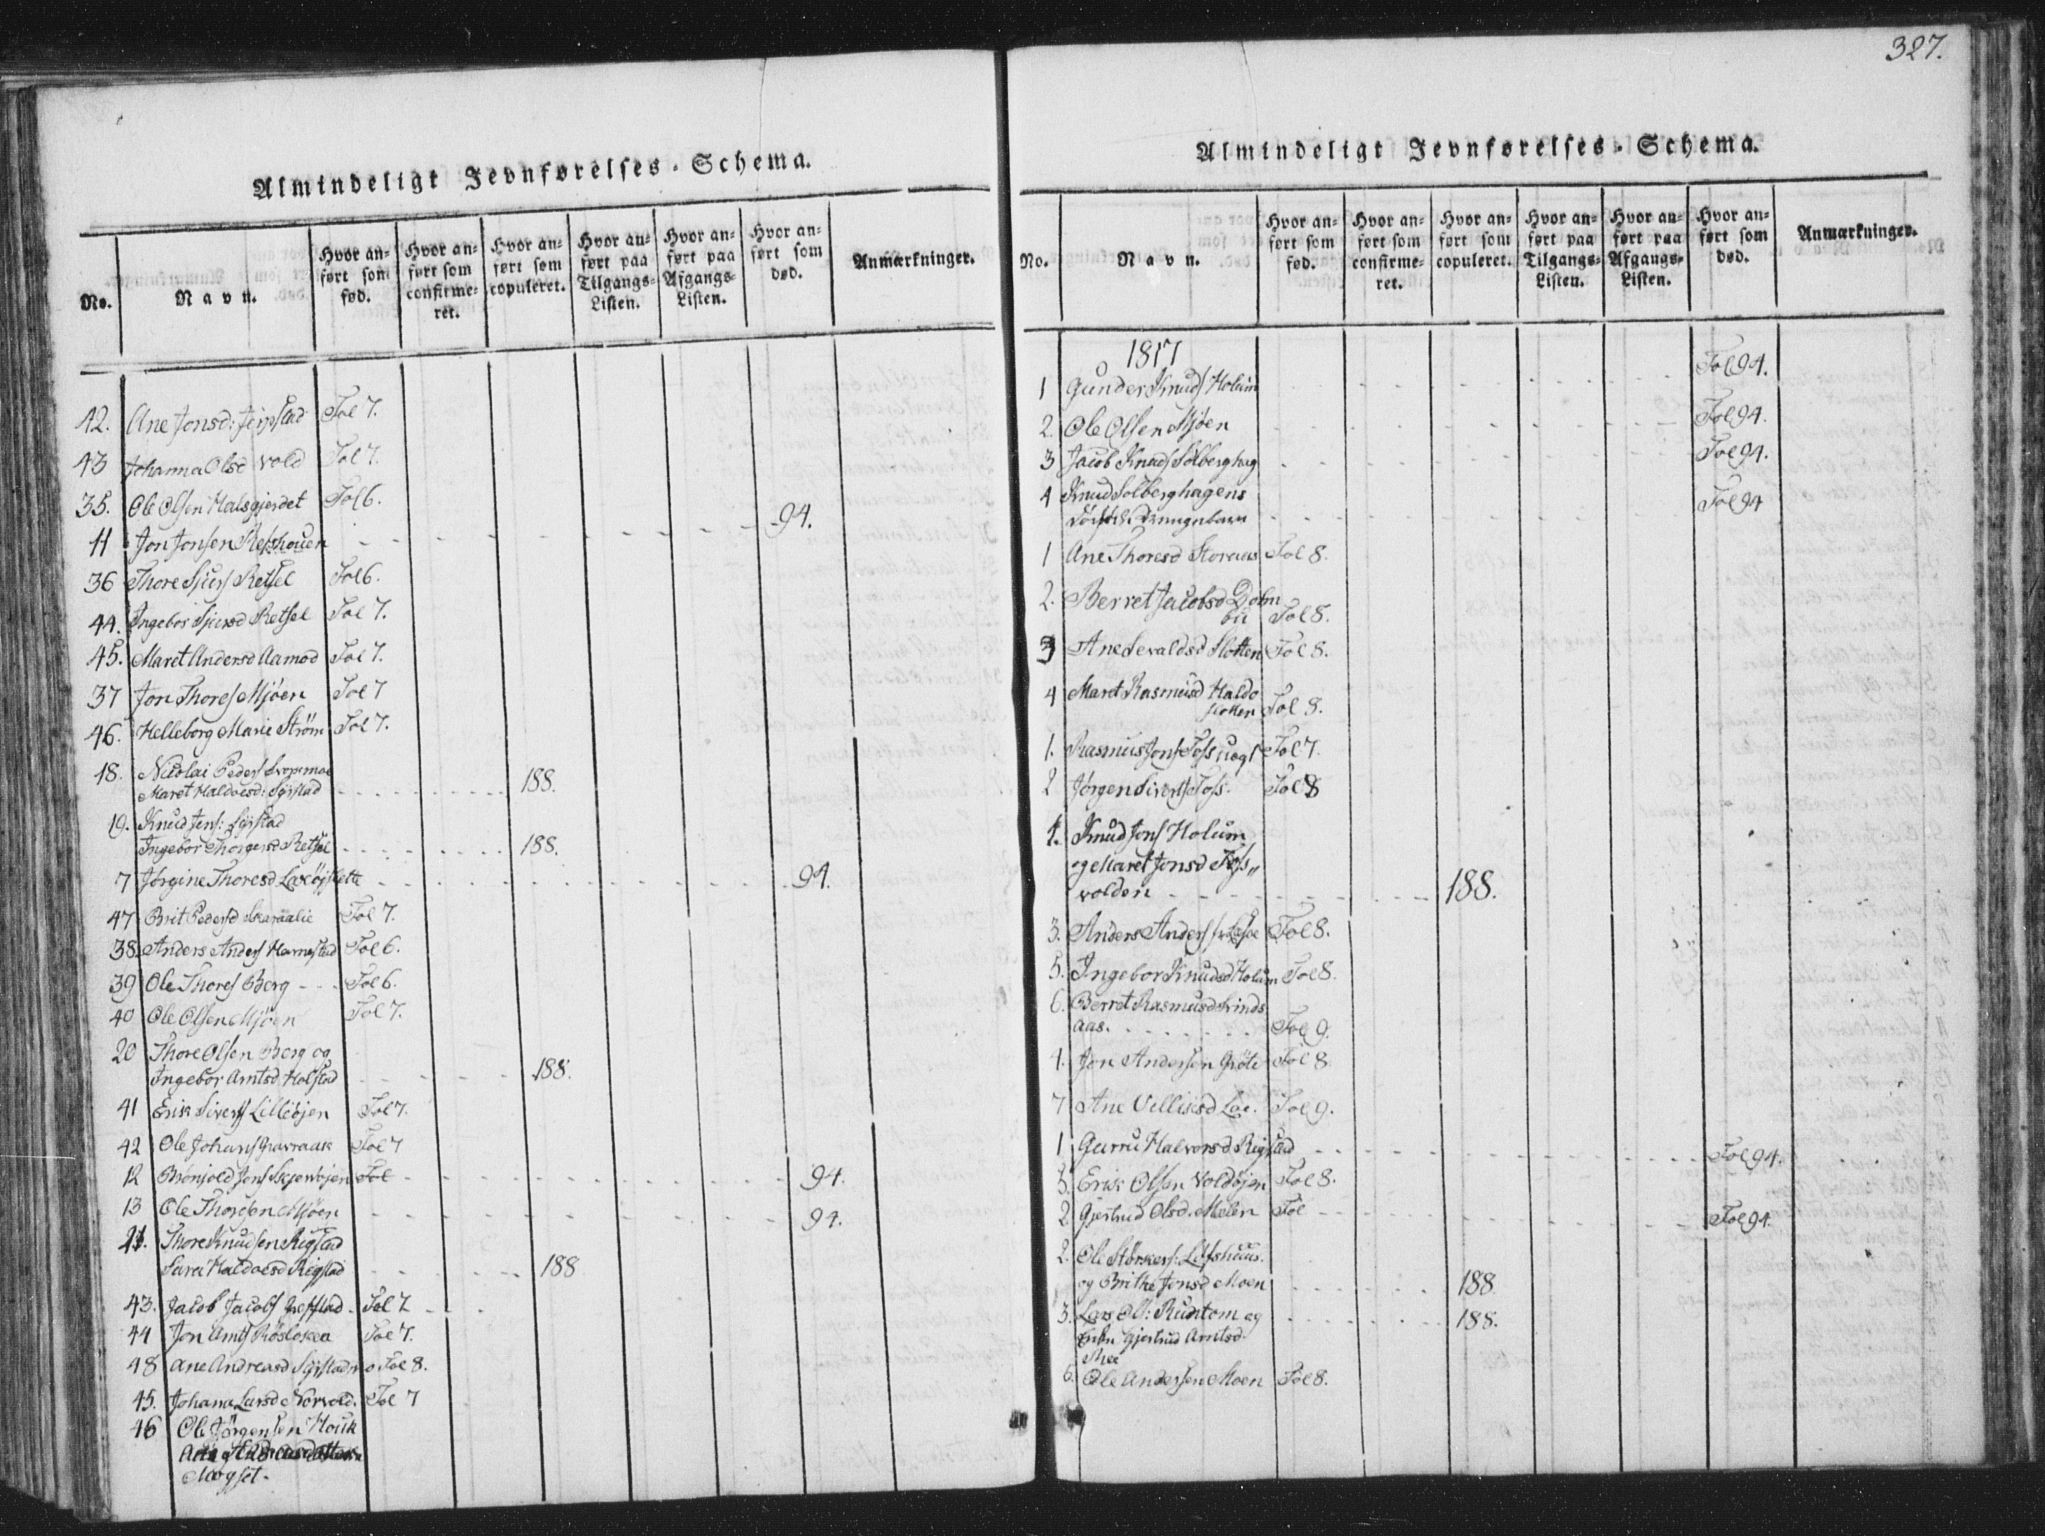 Almindeligt Jevnførelses-Schema.
No. Navn. Hvor anført som fød. Hvor anført som confirmeret. Hvor anført som copuleret. Hvor anført paa Tilgangs-Listen. Hvor anført paa Afgangs-Listen. Hvor anført som død. Anmærkninger.
42. Ane Jonsd: Fol 7.
43 Johanna Olsd Vold Fol 7.
35. Ole Olsen Halsgjerdet Fol 6.
11 Jon Jonsen 94.
36 Thore Sjurs Retsel Fol 6.
44. Ingebor Sjursd Retsel Fol 7.
45. Maret Andersd Aamod Fol 7.
37 Jon Thores Mjöen Fol 7
46. Helleborg Marie Ström Fol 7.
18. Nicolai Peders
Maret Haldoesd: Syrstad 188.
19. Knud Jens: Syrstad
Ingebor Thorgersd Retsel 188.
7 Jörgine Thoresd 94.
47 Brit Pedersd Skaraalie Fol 7.
38. Anders Anders Harnestad Fol 6.
39 Ole Thores Berg Fol 6.
40 Ole Olsen Mjöen Fol 7.
20 Thore Olsen Berg og
Ingebor Arntsd Holstad 188.
41 Erik Sivers Lilleöjen Fol 7.
42 Ole Johans Gravraak Fol 7
12 Brönjold Jons Skjenöjen Fol 94.
13 Ole Thoresen Mjöen 94.
21. Thore Knudsen Rigstad
Sara Haldoesd Rigstad 188
43. Jacob Jacobs Fol 7
44 Jon Arnts Röslökken Fol 7.
48 Ane Andreasd Syrstadmo Fol 8.
45. Johana Larsd Norvold. Fol 7
46 Ole Jörgensen Houk
Mogset.
327.
Almindeligt Jevnførelses-Schema.
No. Navn. Hvor anført som fød. Hvor anført som confirmeret. Hvor anført som copuleret. Hvor anført paa Tilgangs-Listen. Hvor anført paa Afgangs-Listen. Hvor anført som død. Anmærkninger.
1817
1 Gunder Knuds Holum Fol 94.
2. Ole Olsen Mjöen Fol 94.
3 Jacob Knuds Solberghag Fol 94.
4 Knud Solberghagens
Fol 94
1 Ane Thoresd Storaas Fol 8.
2. Berret Jacobsd Dolm
bu Fol 8.
3 Ane Sevaldsd Slotten Fol 8.
4 Maret Rasmusd Haldo
slotten Fol 8.
1. Rasmus Jons Fol 7.
2 Jörgen Siverts Foss Fol 8
1. Knud Jons Holum
og Maret Jonsd Foss„
volden 188.
3. Anders Anders Fol 8.
5. Ingebor Knudsd Holum Fol 8.
6. Berret Rasmusd Grinds
aas. Fol 9.
4. Jon Andersen Gröte Fol 8.
7 Ane Villiesd Loe. Fol 9.
1 Guru Halvorsd Rigstad Fol 94.
5. Erik Olsen Voldöjen Fol 8.
2 Gjertrud Olsd. Melen Fol Fol 94.
2. Ole Störkers: Litshuus.
og Brithe Jonsd Moen 188.
3. Lars Ols: Runtom og 188.
Enken Gjertrud Arntsd.
6. Ole Andersen Moen Fol 8.